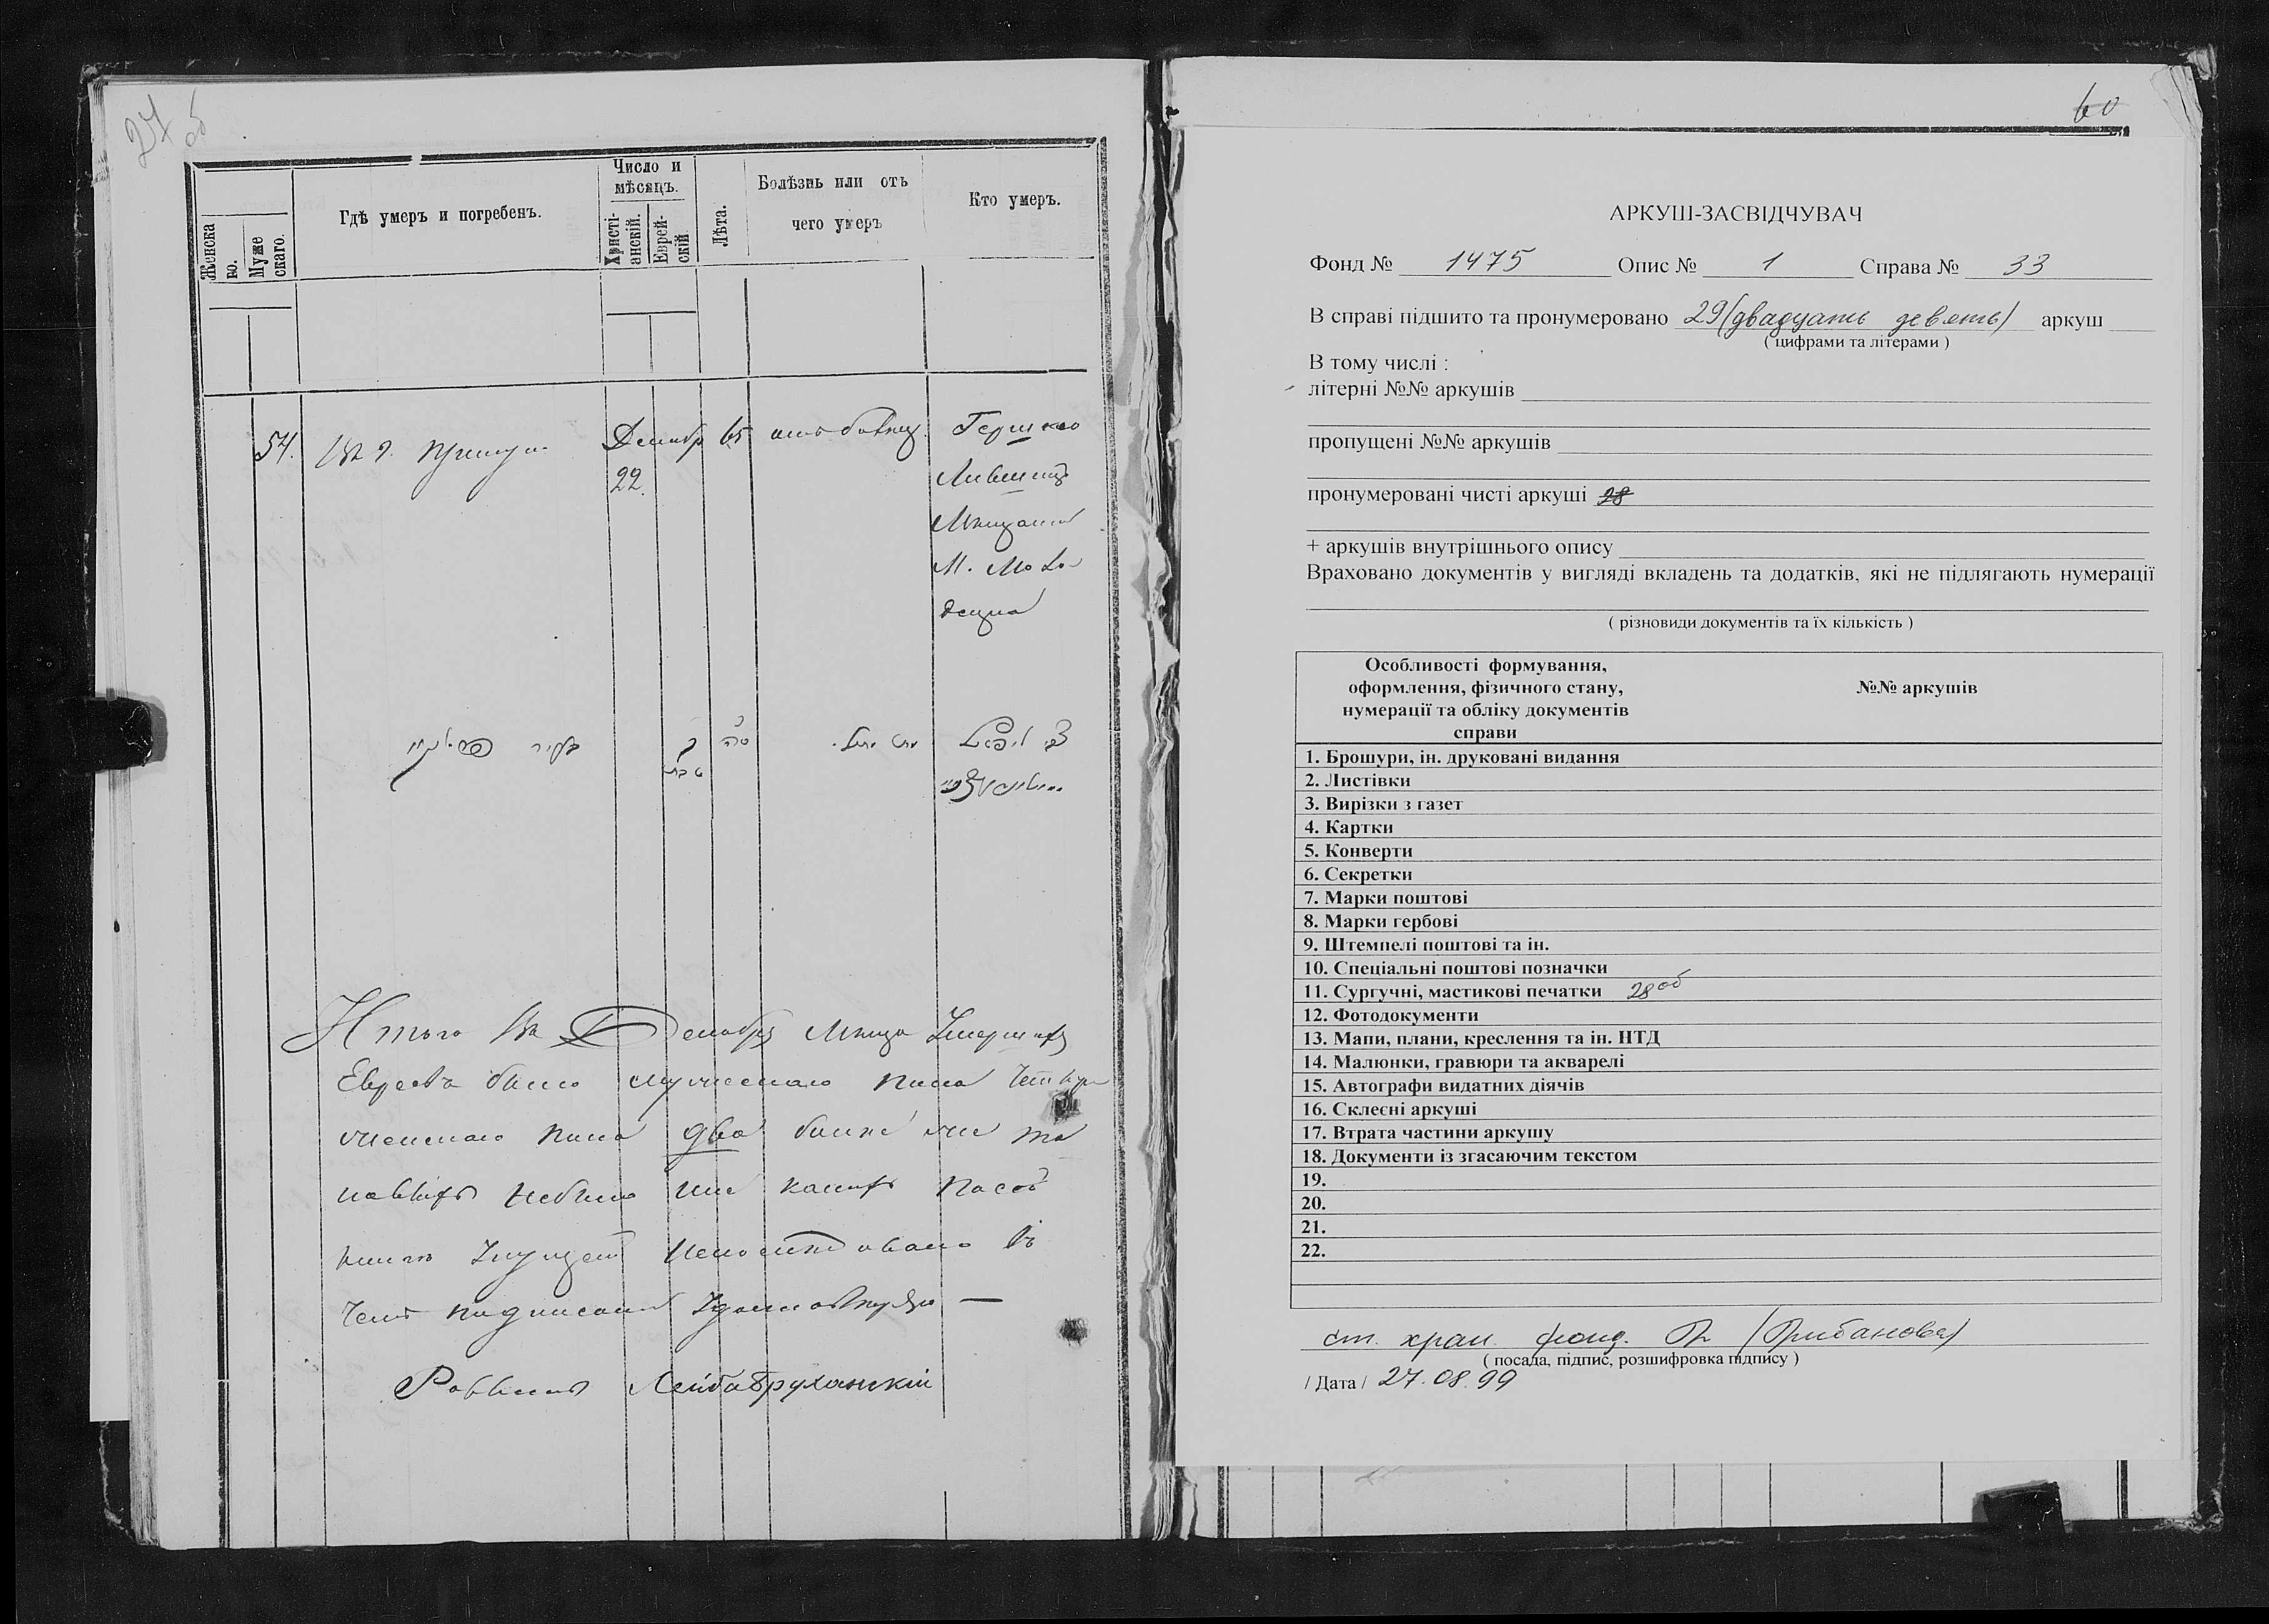 27 об
Женска
го.
Муже
скаго.
Гдѣ умеръ и погребенъ.
Число и
мѣсяцъ.
Христі-
анскій.
Еврей-
скій
Лѣта.
Болѣзнь или отъ
чего умеръ
Кто умеръ.
54.
Декабр
22.
65
Гершко
Лившицъ
Мѣщанинъ
М. Моло
дечна
טבת
Итого въ Декабрѣ Мѣсяцѣ Умершихъ
Евреевъ было мужескаго пола четыре
женскаго пола два болѣе же та
ковыхъ небыло
подписомъ
Раввинъ Лейба Бруханскій
60
АРКУШ-ЗАСВІДЧУВАЧ
Фонд № 1475 Опис № 1 Справа № 33
В справі підшито та пронумеровано 29 (двадцать девять) аркуш
( цифрами та літерами )
В тому числі :
літерні №№ аркушів
пропущені №№ аркушів
пронумеровані чисті аркуші 28
+ аркушів внутрішнього опису
Враховано документів у вигляді вкладень та додатків, які не підлягають нумерації
( різновиди документів та їх кількість )
Особливості формування,
оформлення, фізичного стану,
нумерації та обліку документів
справи
№№ аркушів
1. Брошури, ін. друковані видання
2. Листівки
3. Вирізки з газет
4. Картки
5. Конверти
6. Секретки
7. Марки поштові
8. Марки гербові
9. Штемпелі поштові та ін.
10. Спеціальні поштові позначки
11. Сургучні, мастикові печатки 28об
12. Фотодокументи
13. Мапи, плани, креслення та ін. НТД
14. Малюнки, гравюри та акварелі
15. Автографи видатних діячів
16. Склеєні аркуші
17. Втрата частини аркушу
18. Документи із згасаючим текстом
19.
20.
21.
22.
ст. хран. фонд. (Грибанова)
( посада, підпис, розшифровка підпису )
/ Дата / 27.08.99